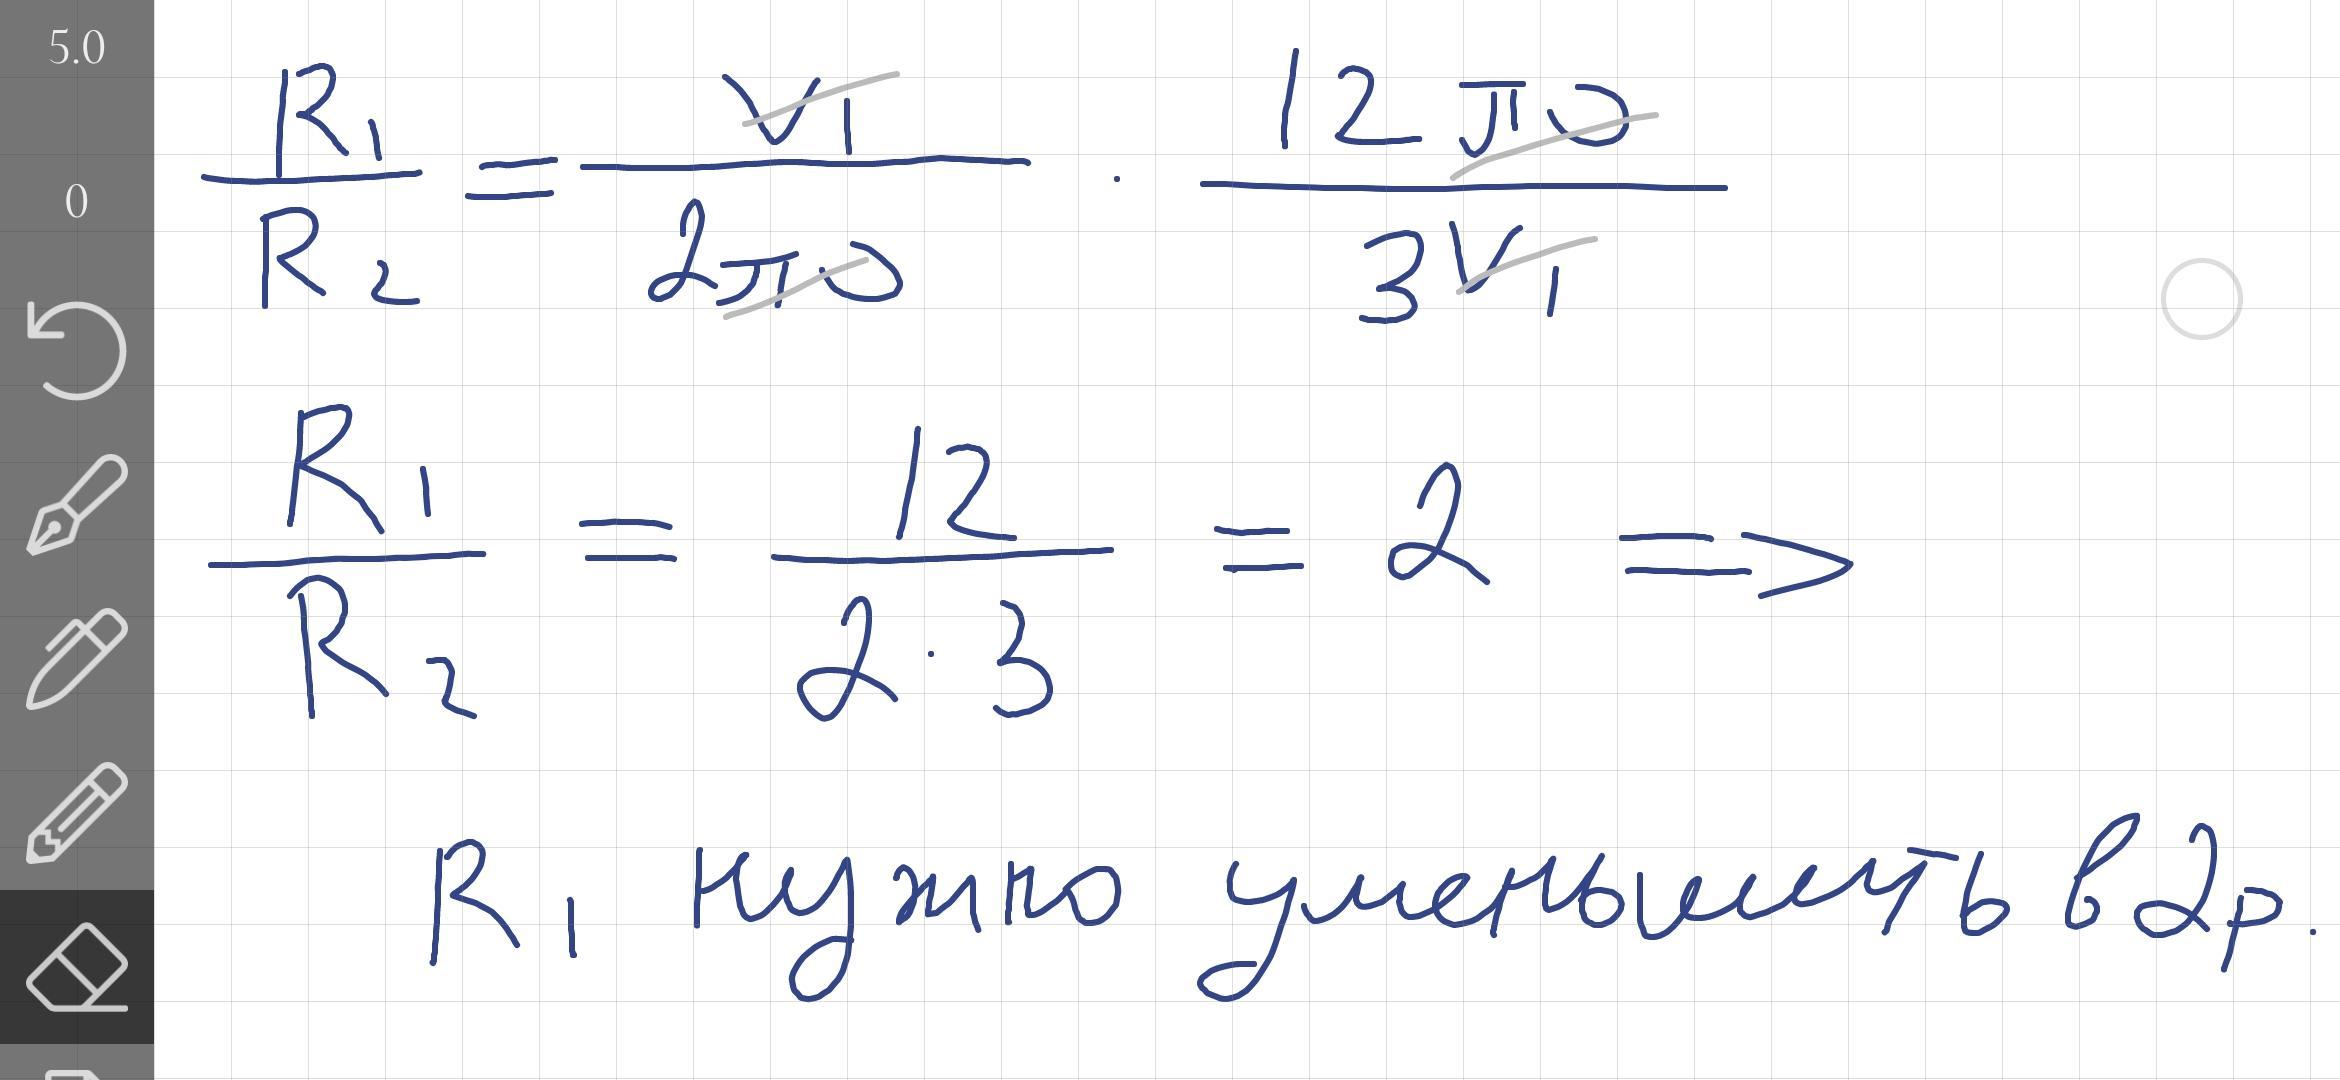 5.0
0
R₁/R₂ = V₁/(2πυ) · 12πυ/(3V₁)
R₁/R₂ = 12/(2·3) = 2 =>
R₁ нужно уменьшить в 2р.